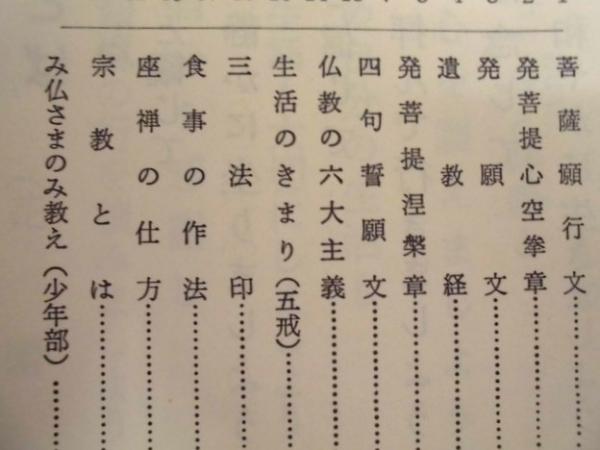 菩薩願行文
発菩提心空拳章
発願文
遺教経
発菩提涅槃章
四句誓願文
仏教の六大主義
生活のきまり（五戒）
三法印
食事の作法
座禅の仕方
宗教とは
み仏さまのみ教え（少年部）